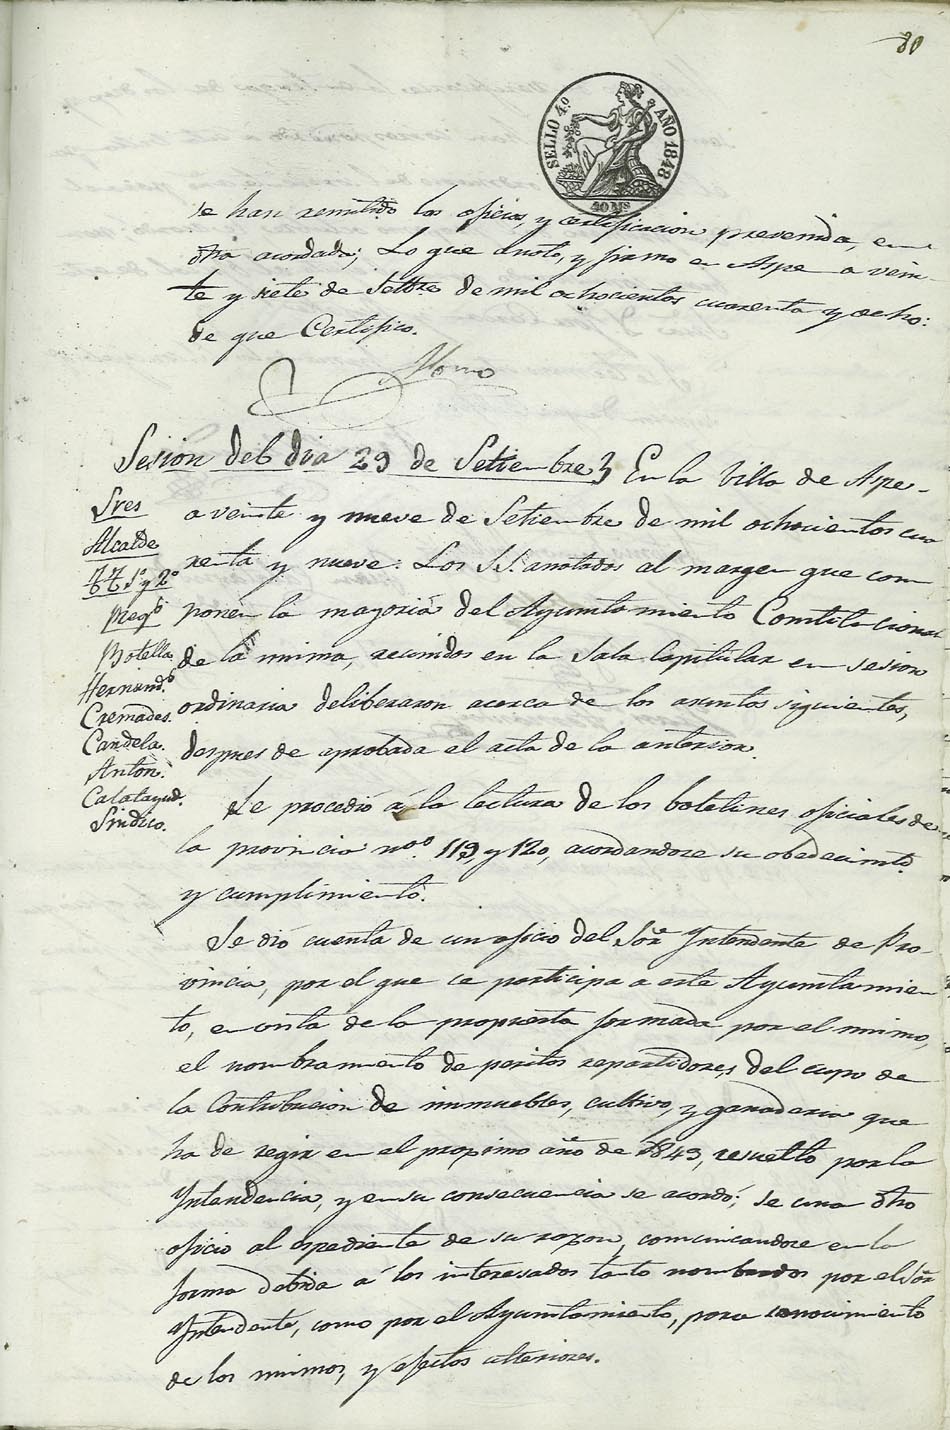 80
SELLO 4.º AÑO 1848
40 Ms
se han remitido los oficios, y certificacion prevenida, en
dha acordada; Lo que anoto, y firmo en Aspe a vein-
te y siete de Setbre de mil ochocientos cuarenta y ocho:
de que Certifico.
Sesion del dia 29 de Setiembre} En la Villa de Aspe-
a veinte y nueve de Setiembre de mil ochocientos cua
renta y nueve. Los S.S. anotados al margen que com
ponen la mayoria del Ayuntamiento Constitucional
de la misma, reunidos en la Sala Capitular en sesion
ordinaria deliberaron acerca de los asuntos siguientes,
despues de aprobada el acta de la anterior.
Sres
Alcalde
TT. 1º y 2º
Botella
Hernand.º
Cremades.
Candela.
Anton.
Calatayud.
Sindico.
Se procedió á la lectura de los boletines oficiales de
la provincia nos. 119, y 120, acordandose su obedecimto.
y cumplimiento.
Se dió cuenta de un oficio del Sor. Yntendente de Pro-
vincia, por el que se participa a este Ayuntamien
to, en vista de la propuesta formada por el mismo,
el nombramiento de peritos repartidores, del cupo de
la Contribucion de inmuebles, cultivo, y ganaderia que
ha de regir en el proximo año de 1849, resuelto por la
Yntendencia, y en su consecuencia se acordó; se una dho
oficio al espediente de su razon, comunicandose en la
forma debida á los interesados tanto nombrados por el Sor.
Yntendente, como por el Ayuntamiento, para conocimiento
de los mismos, y efectos ulteriores.